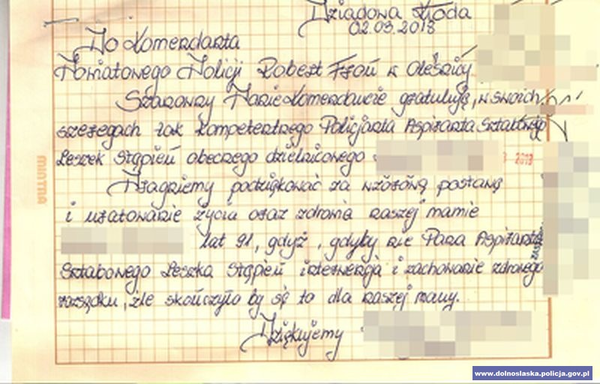 Dziadowa Kłoda
02.03.2018
Do Komendanta
Powiatowego Policji Robert Froń w Oleśnicy
Szanowny Panie Komendancie gratuluję, w swoich
szeregach tak kompetentnego Policjanta Aspiranta Sztabowego
Leszek Stąpień obecnego dzielnicowego
2018
Pragniemy podziękować za wzorową postawę
i uratowanie życia oraz zdrowia naszej mamie
lat 91, gdyż, gdyby nie Pana Aspiranta
Sztabowego Leszka Stąpień interwencja i zachowanie zdrowego
rozsądku, źle skończyło by się to dla naszej mamy.
Dziękujemy
MINTRA
www.dolnoslaska.policja.gov.pl